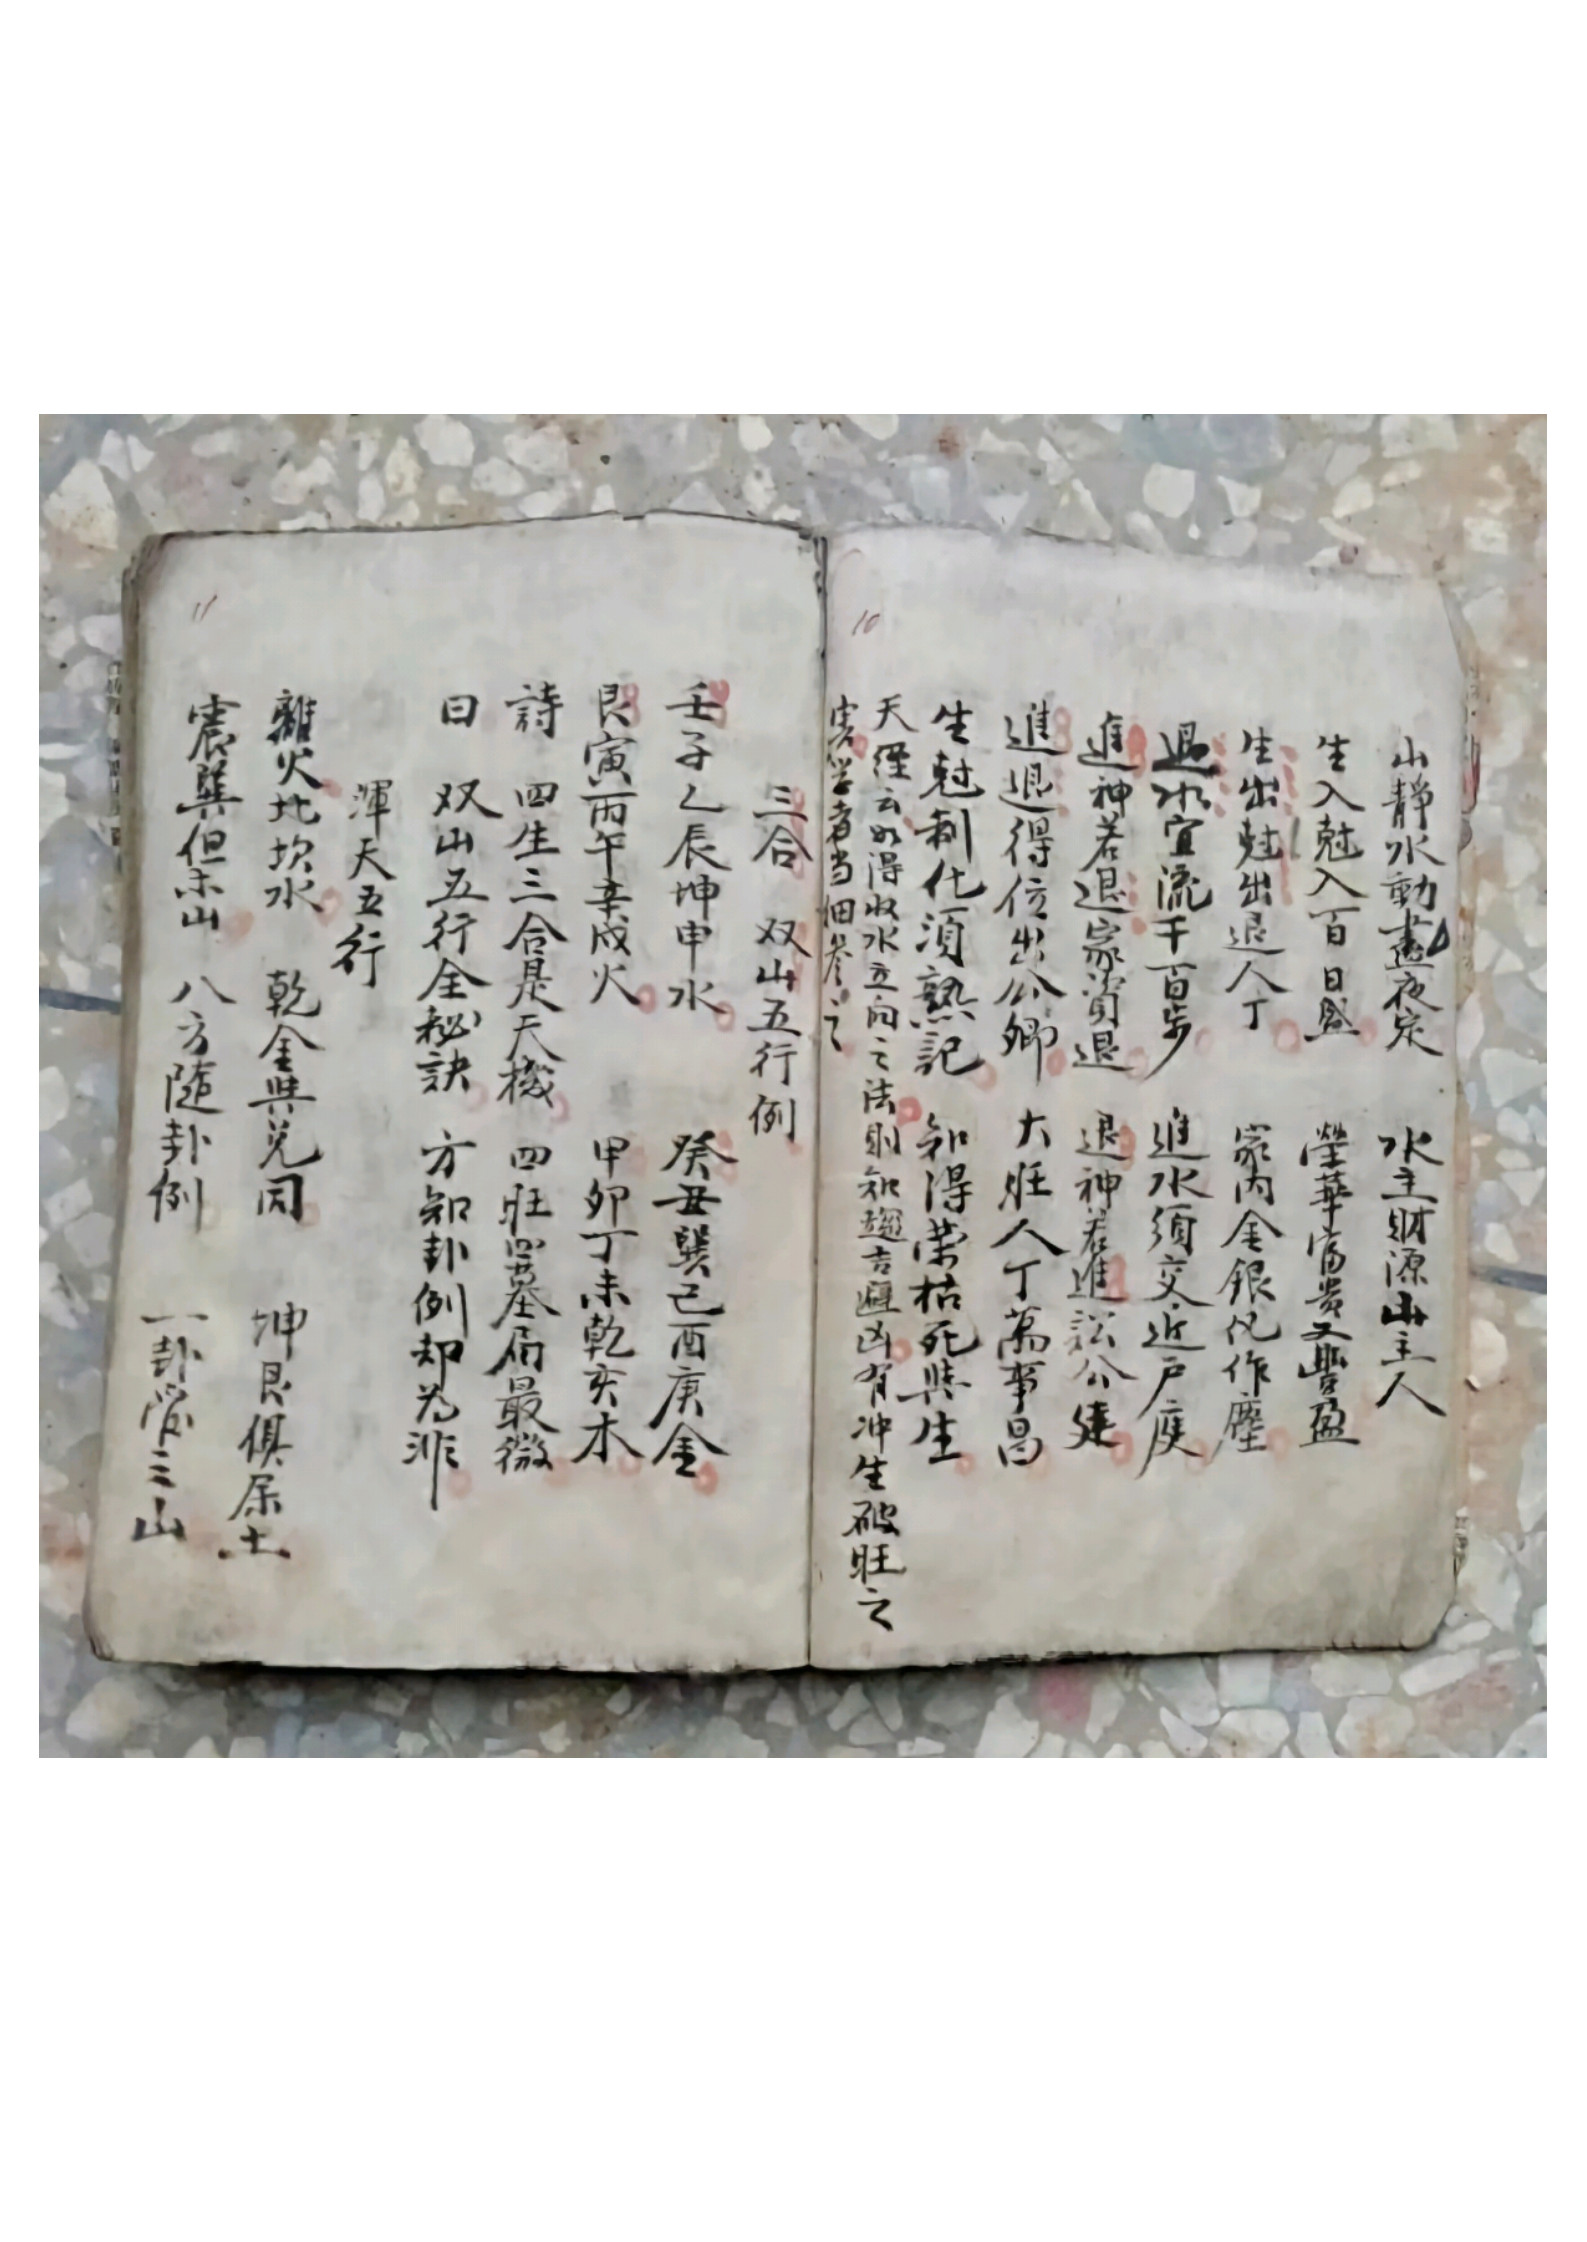 10
山靜水動晝夜定 水主財源山主人
生入尅入百日盛 榮華富貴又豐盈
生出尅出退人丁 家內金銀化作塵
退水宜流千百步 進水須交近戶庭
進神若退家資退 退神若進訟公建
進退得位出公卿 大旺人丁萬事昌
生尅制化須熟記 知得荣枯死與生
天經云如得收水立向之法則知趨吉避凶有冲生破旺之
害学者当细参之
11
三合 双山五行例
壬子乙辰坤申水 癸丑巽巳酉庚金
艮寅丙午辛戌火 甲卯丁未乾亥木
詩 四生三合是天機 四旺四墓局最微
曰 双山五行全秘訣 方知卦例却为非
渾天五行
離火北坎水 乾金與兑同 坤艮俱属土
震巽但木山 八方隨卦例 一卦管三山